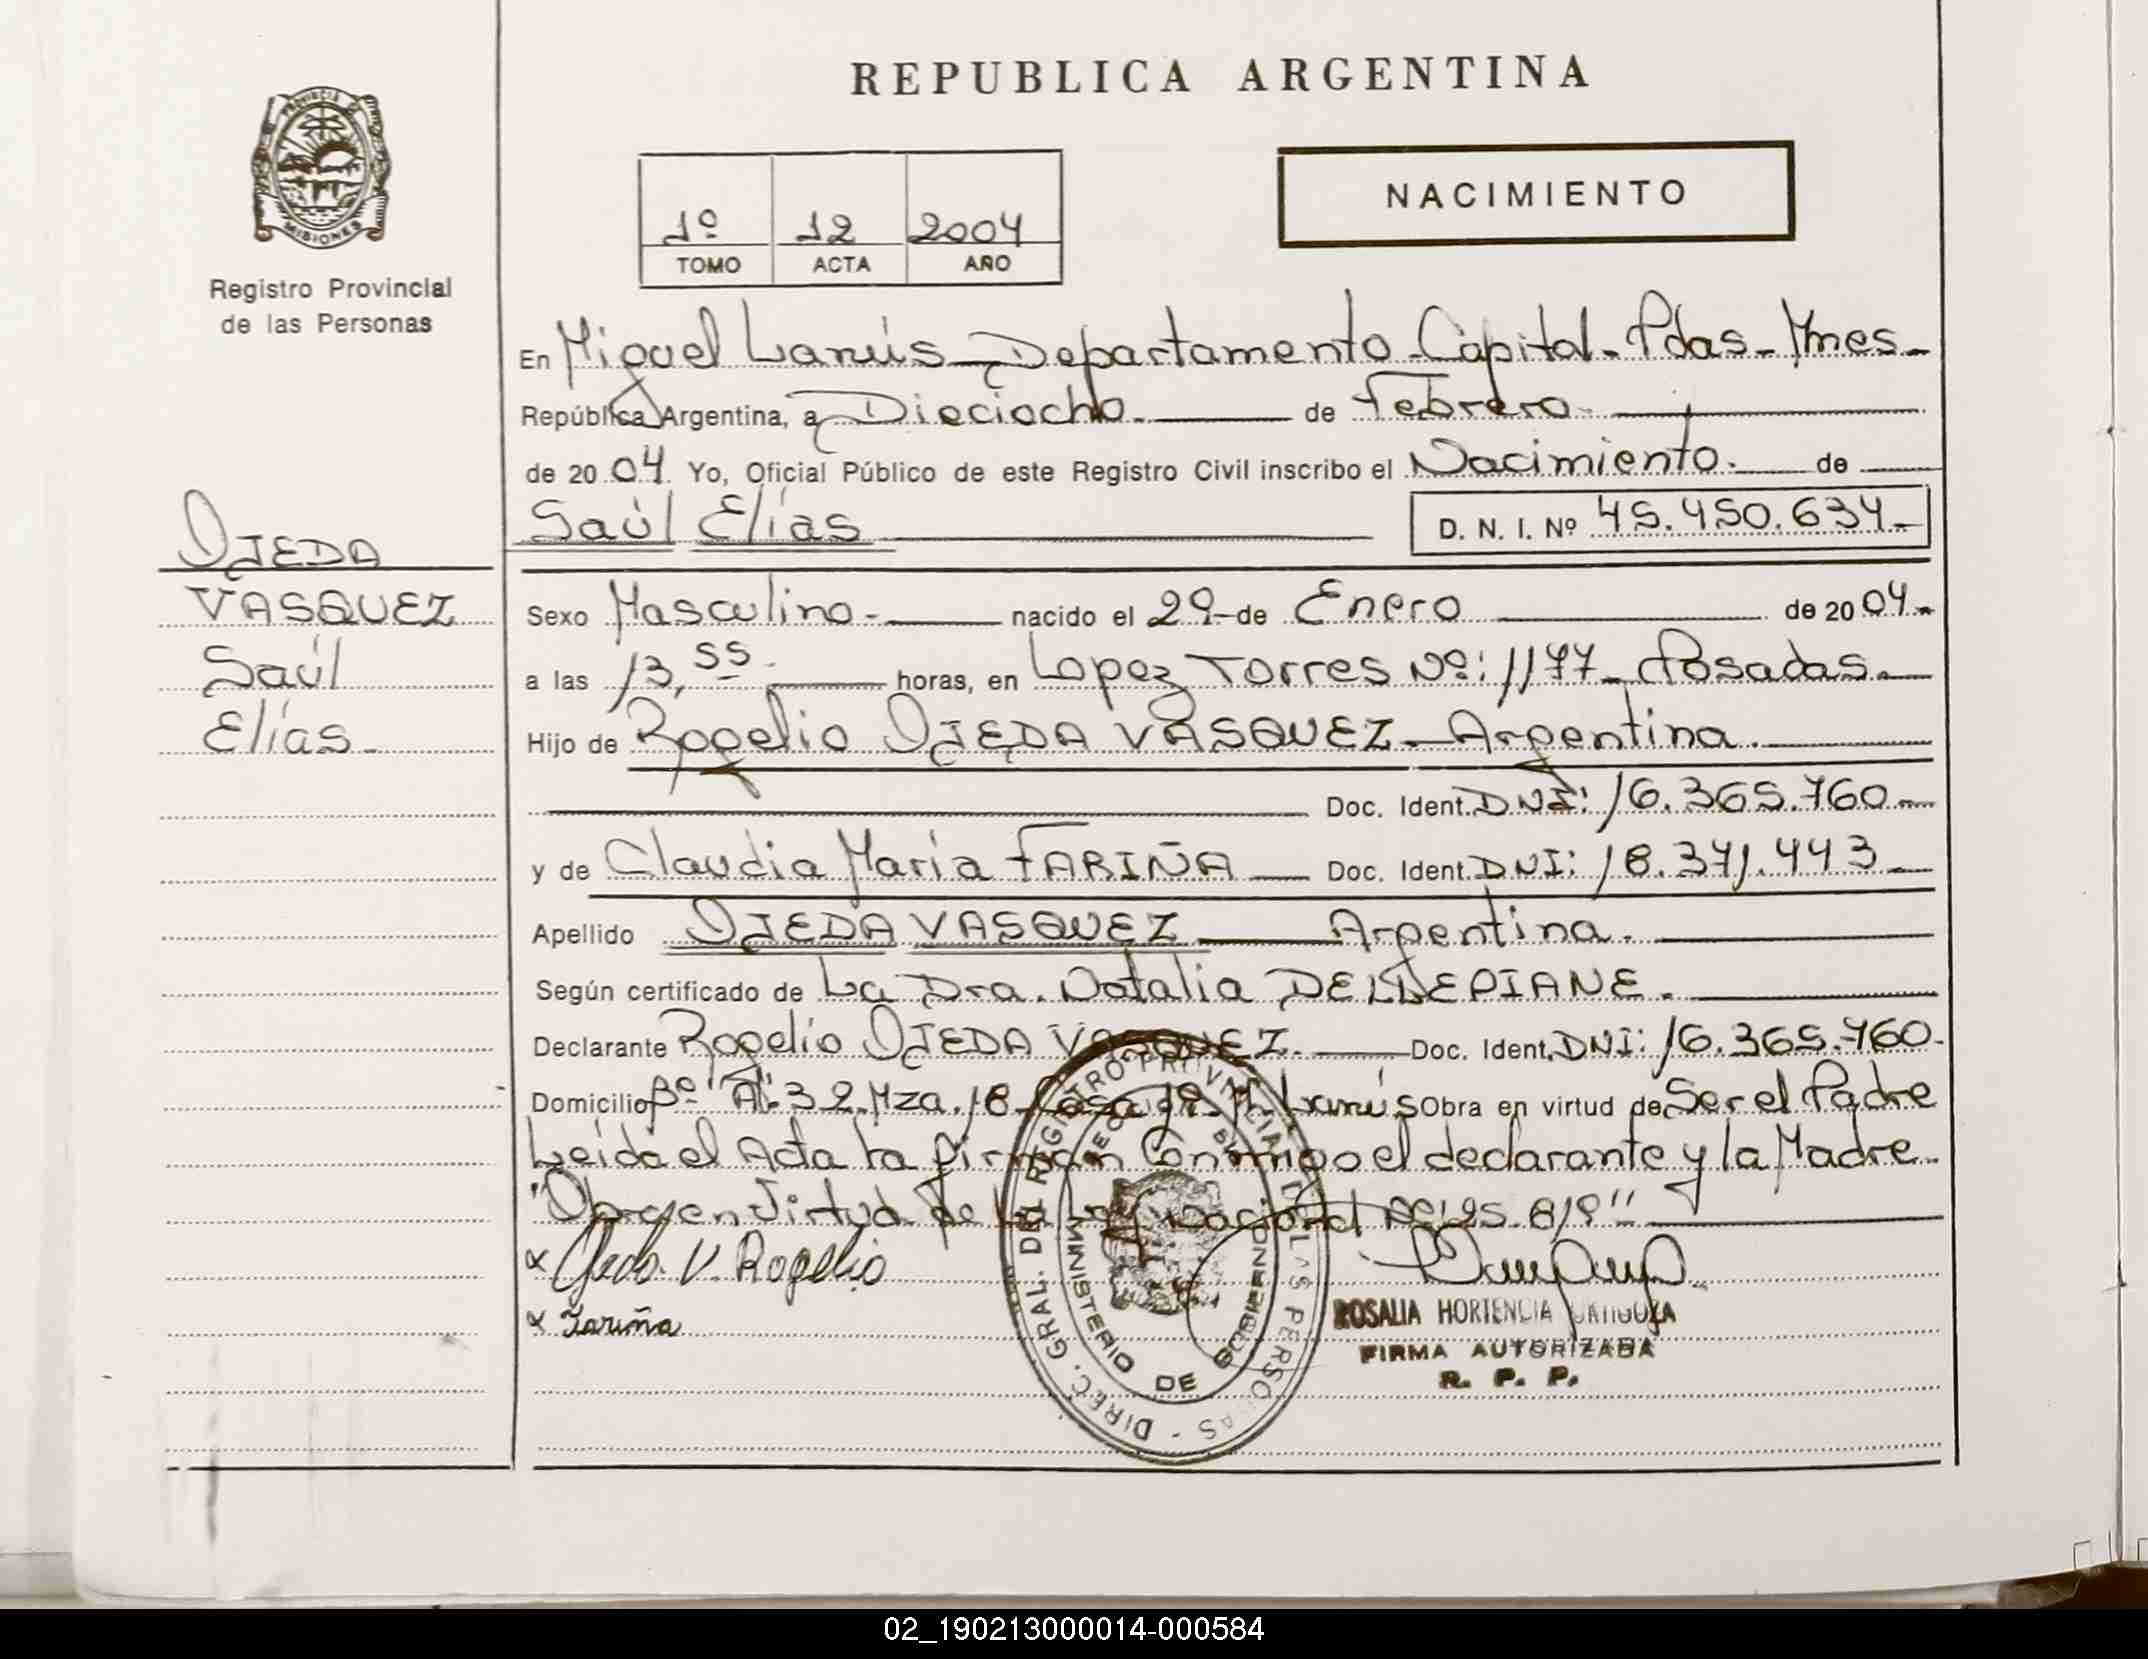 REPUBLICA ARGENTINA
PROVINCIA DE
MISIONES
Registro Provincial
de las Personas
NACIMIENTO
1º 12 2004
TOMO ACTA AÑO
En Miguel Lanús - Departamento - Capital - Pdas - Mnes -
República Argentina, a Dieciocho. de Febrero.
de 20 04. Yo, Oficial Público de este Registro Civil inscribo el Nacimiento. de
Saúl Elías D. N. I. Nº 45.450.634 -
OJEDA
VASQUEZ
Saúl
Elías -
Sexo Masculino - nacido el 29 - de Enero de 20 04. -
a las 13,55 - horas, en Lopez Torres Nº: 1177 - Posadas. -
Hijo de Rogelio OJEDA VASQUEZ - Argentina.
Doc. Ident. DNI: 16.365.760 -
y de Claudia María FARIÑA Doc. Ident. DNI: 18.371.443 -
Apellido OJEDA VASQUEZ Argentina.
Según certificado de La Dra. Natalia
Declarante Rogelio OJEDA VASQUEZ. Doc. Ident. DNI: 16.365.760 -
Domicilio Bº "A" 32 Mza. 18 Casa M. Lanús Obra en virtud de Ser el Padre
Leída el Acta la firman Conmigo el declarante y la Madre -
"Obra en Virtud de la Ley Nacional Nº 25.819"
x Ojeda V. Rogelio
x Fariña
DIREC. GRAL. DEL REGISTRO PROVINCIAL DE LAS PERSONAS -
MINISTERIO DE GOBIERNO
ROSALIA HORTENCIA
FIRMA AUTORIZADA
R. P. P.
02_190213000014-000584